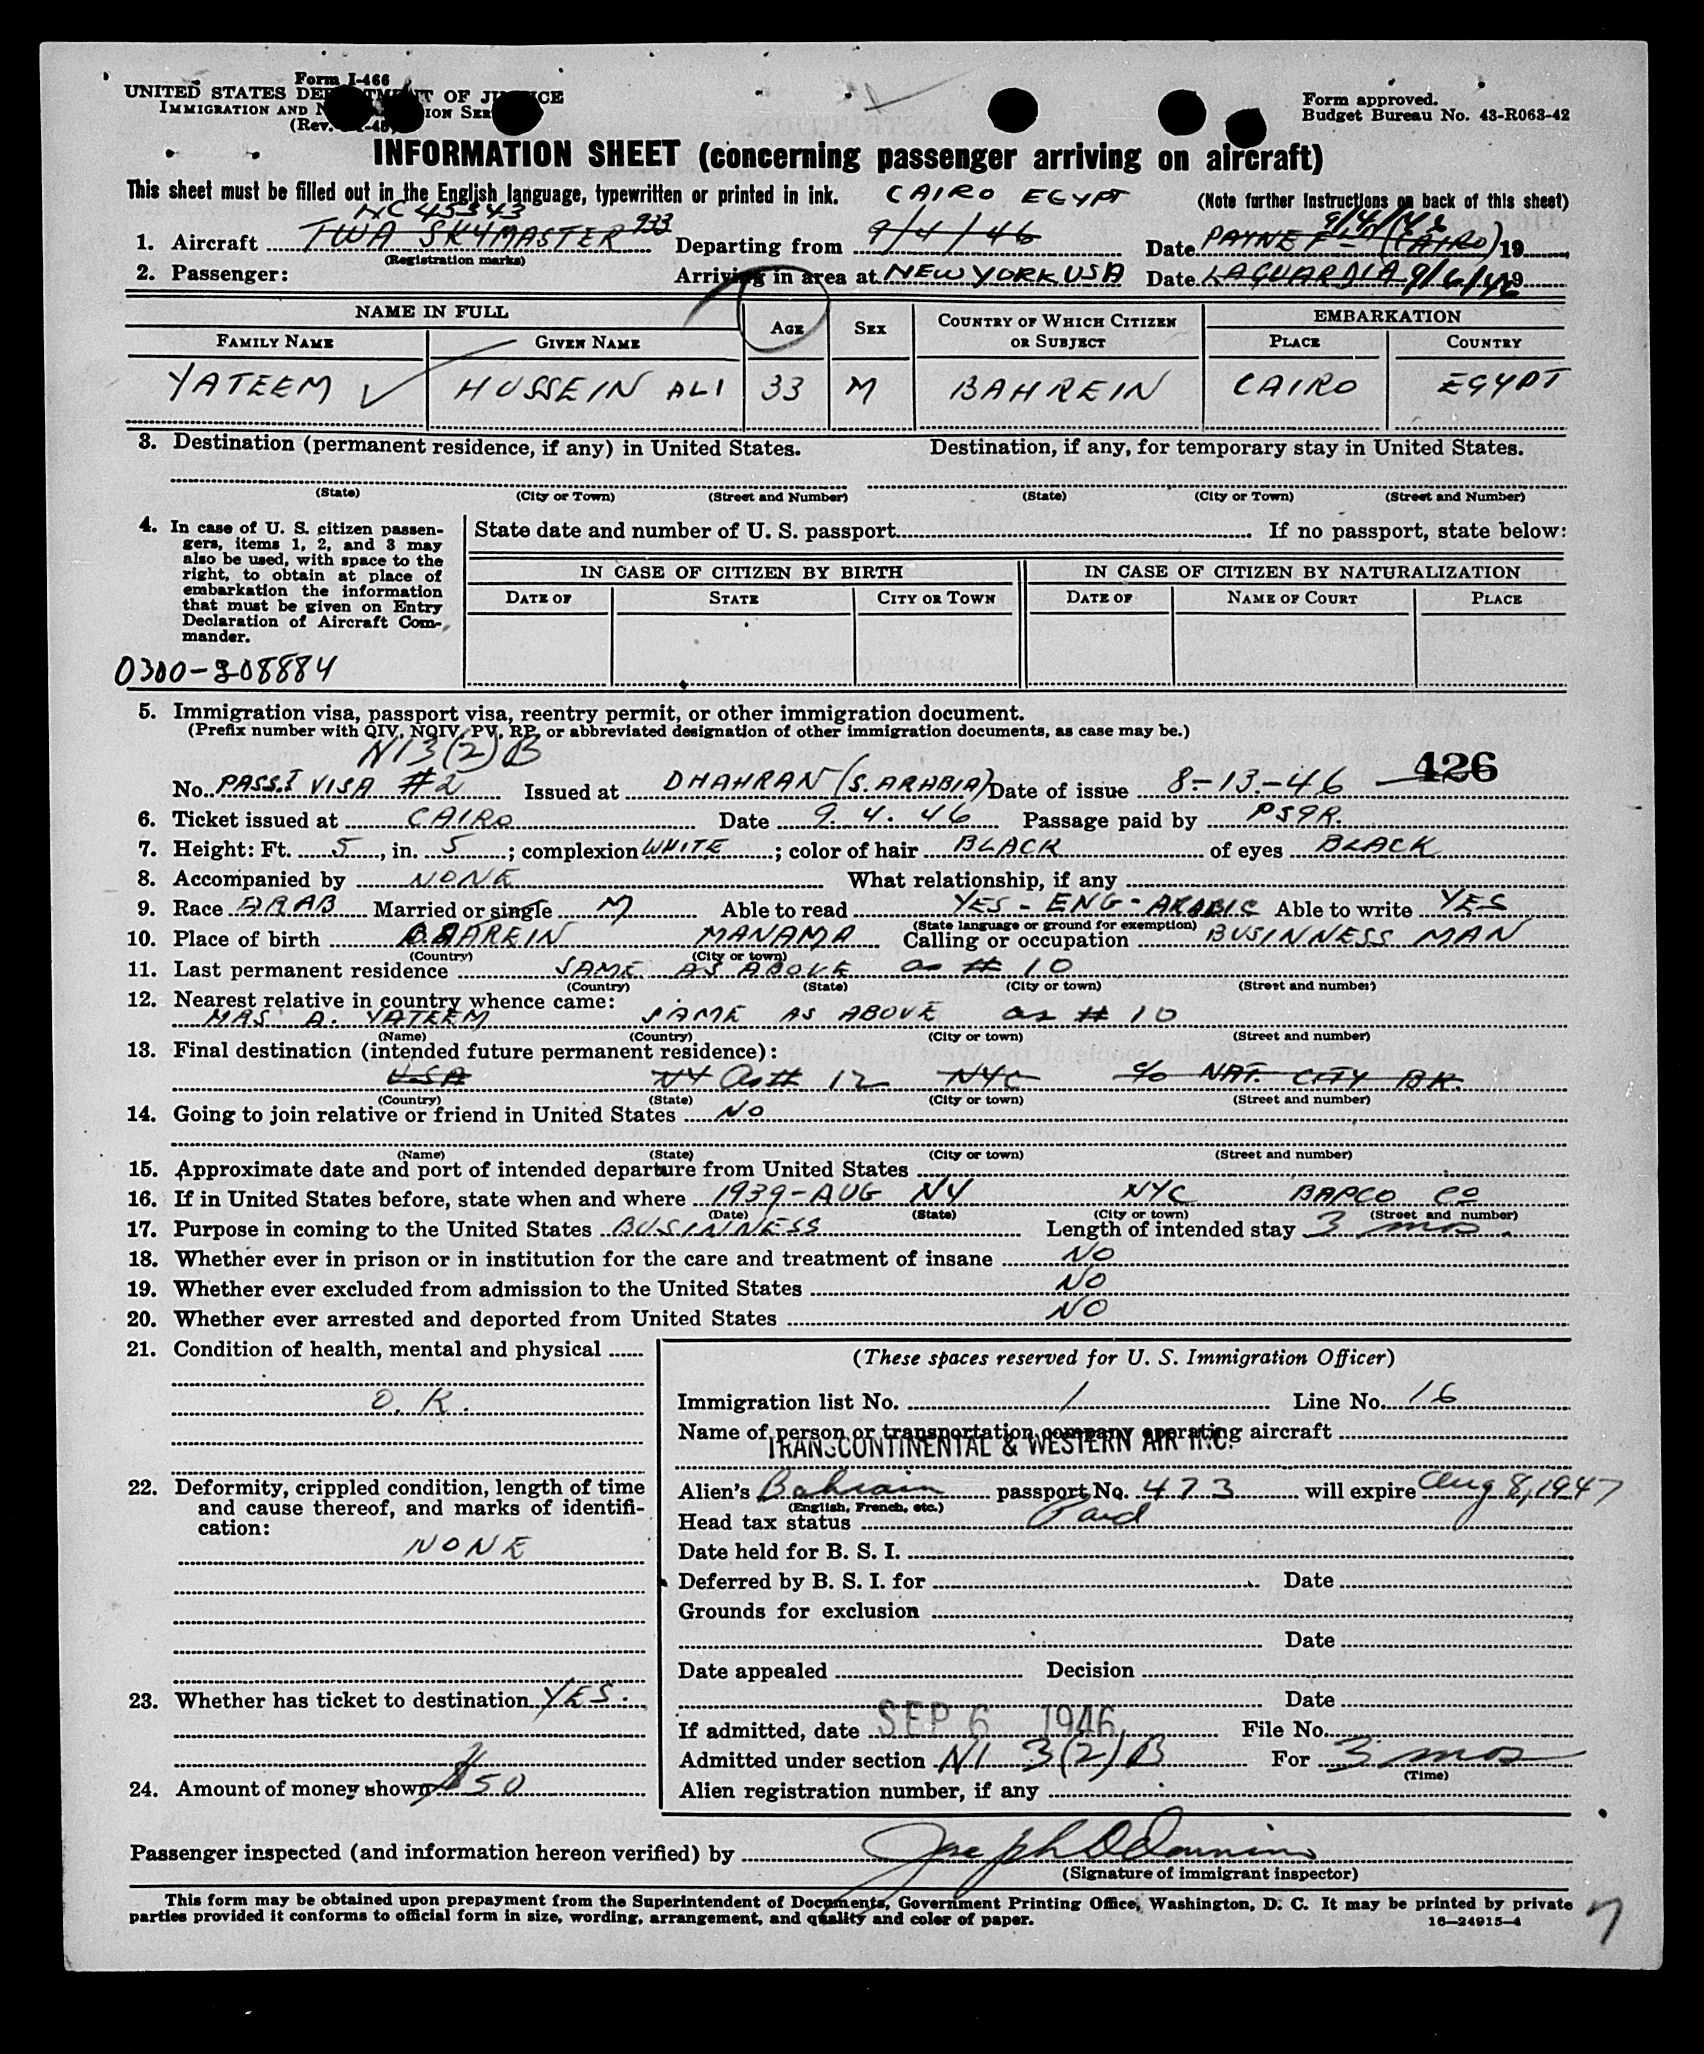 Form I-466
UNITED STATES DEPARTMENT OF JUSTICE
IMMIGRATION AND NATURALIZATION SERVICE
(Rev.
Form approved.
Budget Bureau No. 43-R063-42
INFORMATION SHEET (concerning passenger arriving on aircraft)
This sheet must be filled out in the English language, typewritten or printed in ink. CAIRO EGYPT (Note further instructions on back of this sheet)
NC 45343 9/4/46
1. Aircraft TWA SKYMASTER 933 Departing from 9/4/46 Date PAYNE F (CAIRO) 19
(Registration marks)
2. Passenger: Arriving in area at NEW YORK USA Date LAGUARDIA 9/6/46 19
NAME IN FULL AGE SEX COUNTRY OF WHICH CITIZEN OR SUBJECT EMBARKATION
FAMILY NAME GIVEN NAME PLACE COUNTRY
YATEEM HUSSEIN ALI 33 M BAHREIN CAIRO EGYPT
3. Destination (permanent residence, if any) in United States. Destination, if any, for temporary stay in United States.
(State) (City or Town) (Street and Number) (State) (City or Town) (Street and Number)
4. In case of U. S. citizen passengers, items 1, 2, and 3 may also be used, with space to the right, to obtain at place of embarkation the information that must be given on Entry Declaration of Aircraft Commander.
State date and number of U. S. passport If no passport, state below:
IN CASE OF CITIZEN BY BIRTH IN CASE OF CITIZEN BY NATURALIZATION
DATE OF STATE CITY OR TOWN DATE OF NAME OF COURT PLACE
0300-208884
5. Immigration visa, passport visa, reentry permit, or other immigration document.
(Prefix number with QIV, NQIV, PV, RP, or abbreviated designation of other immigration documents, as case may be.)
NI 3(2) B
426
No. PASS.T VISA #2 Issued at DHAHRAN (S. ARABIA) Date of issue 8-13-46
6. Ticket issued at CAIRO Date 9.4.46 Passage paid by PSGR.
7. Height: Ft. 5, in. 5; complexion WHITE; color of hair BLACK of eyes BLACK
8. Accompanied by NONE What relationship, if any
9. Race ARAB Married or single M Able to read YES - ENG - ARABIC Able to write YES
(State language or ground for exemption)
10. Place of birth BAHREIN MANAMA Calling or occupation BUSINNESS MAN
(Country) (City or town)
11. Last permanent residence SAME AS ABOVE as # 10
(Country) (State) (City or town) (Street and number)
12. Nearest relative in country whence came:
MRS A. YATEEM SAME AS ABOVE as # 10
(Name) (Country) (City or town) (Street and number)
13. Final destination (intended future permanent residence):
USA NY as # 12 NYC c/o NAT. CITY BK.
(Country) (State) (City or town) (Street and number)
14. Going to join relative or friend in United States NO
(Name) (State) (City or town) (Street and number)
15. Approximate date and port of intended departure from United States
16. If in United States before, state when and where 1939-AUG NY NYC BAPCO CO
(Date) (State) (City or town) (Street and number)
17. Purpose in coming to the United States BUSINNESS Length of intended stay 3 mos.
18. Whether ever in prison or in institution for the care and treatment of insane NO
19. Whether ever excluded from admission to the United States NO
20. Whether ever arrested and deported from United States NO
21. Condition of health, mental and physical
O. K.
22. Deformity, crippled condition, length of time and cause thereof, and marks of identification:
NONE
23. Whether has ticket to destination YES.
24. Amount of money shown $50
(These spaces reserved for U. S. Immigration Officer)
Immigration list No. 1 Line No. 16
Name of person or transportation company operating aircraft
TRANSCONTINENTAL & WESTERN AIR INC.
Alien's Bahrain passport No. 473 will expire Aug 8, 1947
(English, French, etc.)
Head tax status Paid
Date held for B. S. I.
Deferred by B. S. I. for Date
Grounds for exclusion
Date
Date appealed Decision
Date
If admitted, date SEP 6 1946 File No.
Admitted under section NI 3(2) B For 3 mos
(Time)
Alien registration number, if any
Passenger inspected (and information hereon verified) by Joseph
(Signature of immigrant inspector)
This form may be obtained upon prepayment from the Superintendent of Documents, Government Printing Office, Washington, D. C. It may be printed by private
parties provided it conforms to official form in size, wording, arrangement, and quality and color of paper.
16-24915-4
7